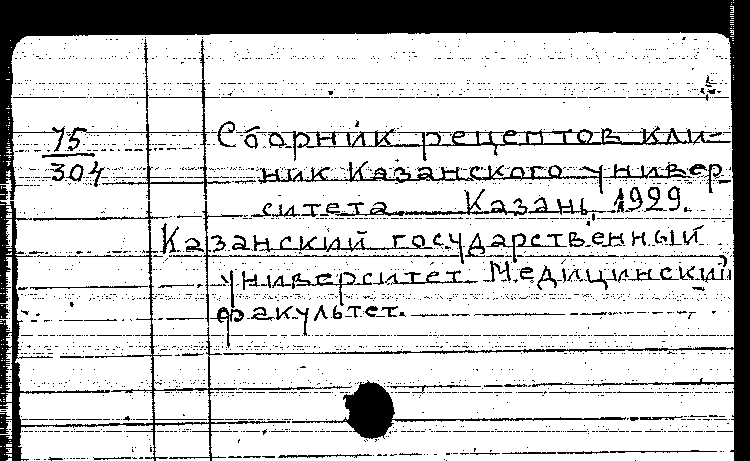 75
304
Сборник рецептов кли-
ник Казанского универ-
ситета. Казань, 1929.
Казанский государственный
университет. Медицинский
факультет.